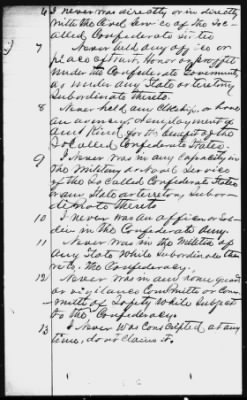 6 I never was directly or in directly
with the Civel Service of the Soc
alled Confederate States
7 Never held any office or
place of trust, Honor or proffit
Under the Confederate Government
or under any State or teretory
Subordinate thereto
8 Never held any Clerkship, or have
an agency, or Employment of
any Kind for the benefit of the
So Called Confederate States.
9 I Never was in any Capacity in
the Military or Naval Service
of the So Called Confederate States
or any State or Territory, Subor
dinate thereto
10 I never was an officer or Sol-
dier in the Confederate Army.
11 Never was in the Militia of
any State While Subordinate ther
eto. the Confederacy.
12 Never was in any home guard
or vigilance Committee or Com
mittee of Safety While Subject
to the Confederacy.
13 I Never was Conscripted at any
time, do not claim it.